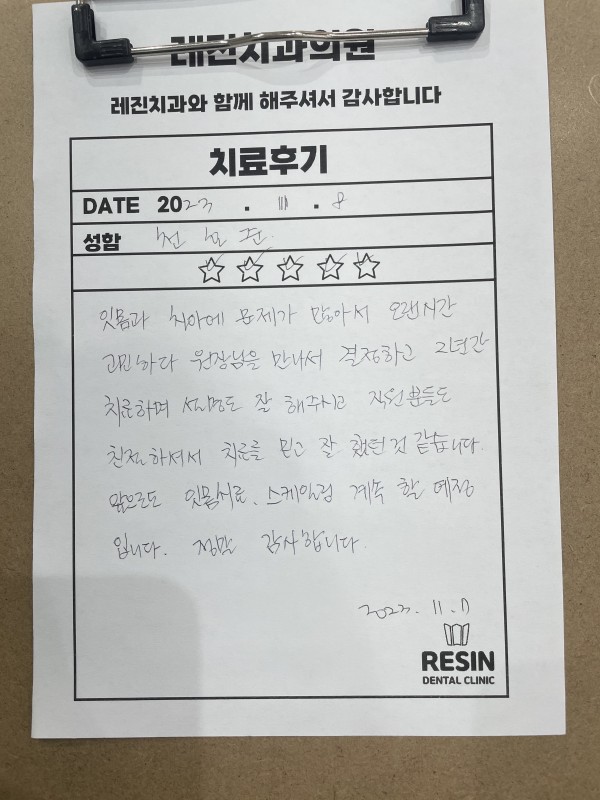 레진치과의원
레진치과와 함께 해주셔서 감사합니다
치료후기
DATE 2023 . 11 . 8
성함
잇몸과 치아에 문제가 많아서 오랜시간
고민하다 원장님을 만나서 결정하고 2년간
치료하며 설명도 잘 해주시고 직원분들도
친절하셔서 치료를 믿고 잘 했던것 같습니다.
앞으로도 잇몸치료, 스케일링 계속 할 예정
입니다. 정말 감사합니다.
2023. 11.
RESIN
DENTAL CLINIC